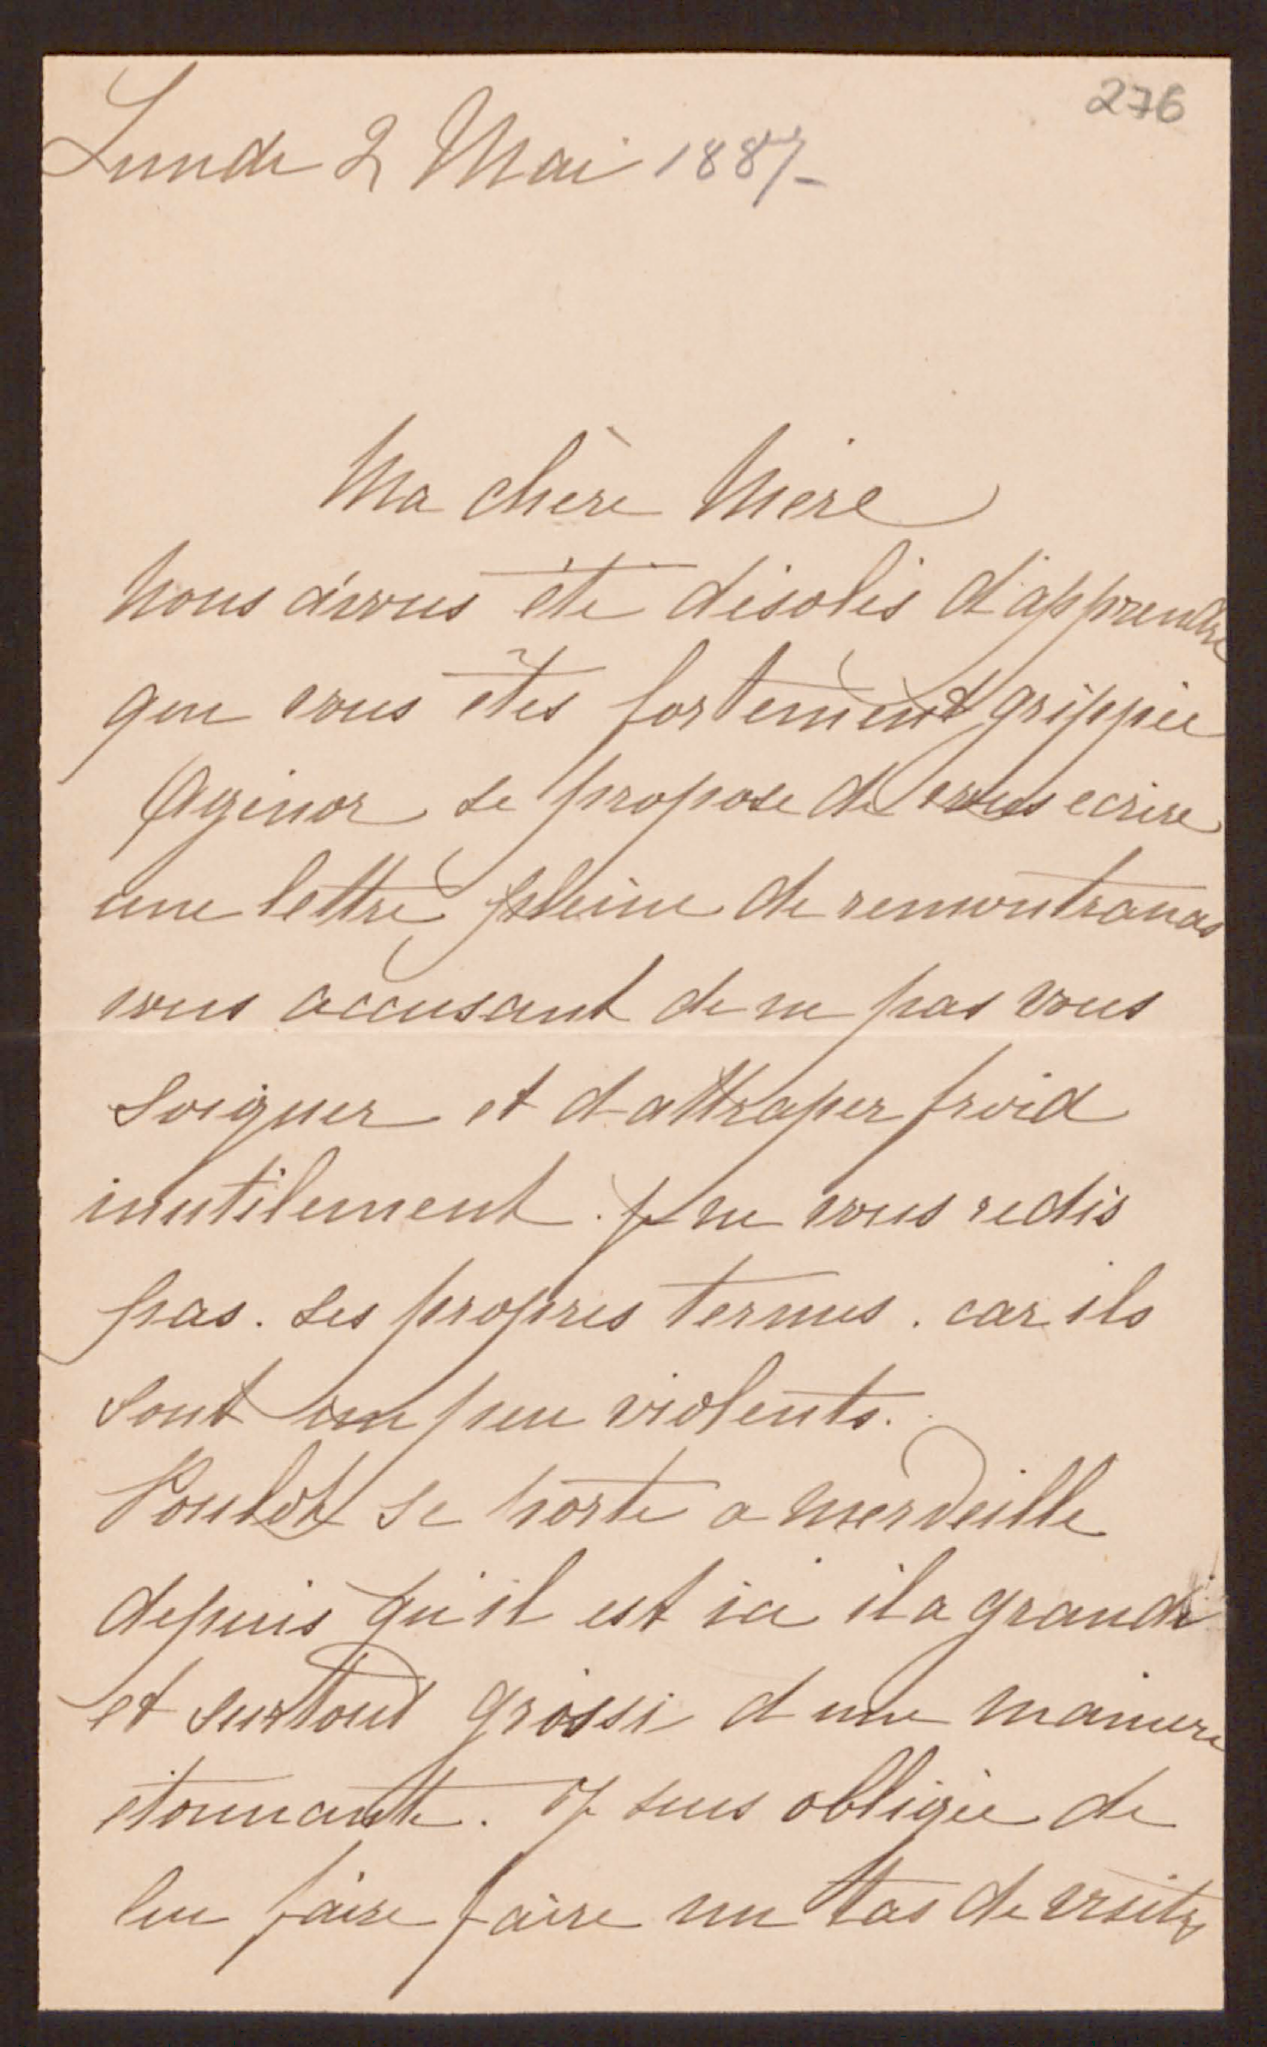 276
Lundi 2 Mai 1887-
Ma chère Mère
Nous avons été désolés d'apprendre
que vous êtes fortement grippée
Agénor se propose de vous ecrire
une lettre pleine de remontrances
vous accusant de ne pas vous
soigner et d'attraper froid
inutilement. Je ne vous redis
pas. ses propres termes. car ils
sont un peu violents.
Poulot se porte a merveille
depuis qu'il est ici il a grandi
et surtout grossi d une maniere
étonnante. Je suis obligée de
lui faire faire un tas de visites